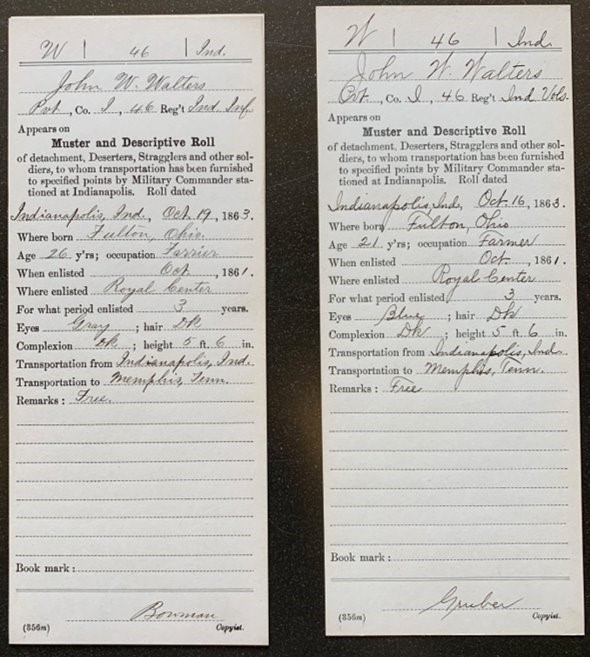 W | 46 | Ind.
John W. Walters
Pvt., Co. I, 46 Reg't Ind. Inf.
Appears on
Muster and Descriptive Roll
of detachment, Deserters, Stragglers and other sol-
diers, to whom transportation has been furnished
to specified points by Military Commander sta-
tioned at Indianapolis. Roll dated
Indianapolis, Ind., Oct. 19, 1863.
Where born Fulton, Ohio
Age 26 y'rs; occupation Farrier
When enlisted Oct., 1861.
Where enlisted Royal Center
For what period enlisted 3 years.
Eyes Gray ; hair Dk
Complexion Dk ; height 5 ft. 6 in.
Transportation from Indianapolis, Ind.
Transportation to Memphis, Tenn.
Remarks : Free.
Book mark :
Bowman
(356m) Copyist.
W | 46 | Ind.
John W. Walters
Pvt., Co. I, 46 Reg't Ind Vols.
Appears on
Muster and Descriptive Roll
of detachment, Deserters, Stragglers and other sol-
diers, to whom transportation has been furnished
to specified points by Military Commander sta-
tioned at Indianapolis. Roll dated
Indianapolis, Ind, Oct. 16, 1863.
Where born Fulton, Ohio
Age 21 y'rs; occupation Farmer
When enlisted Oct., 1861.
Where enlisted Royal Center
For what period enlisted 3 years.
Eyes Blue ; hair Dk
Complexion Dk ; height 5 ft. 6 in.
Transportation from Indianapolis, Ind.
Transportation to Memphis, Tenn.
Remarks : Free
Book mark :
Gruber
(356m) Copyist.